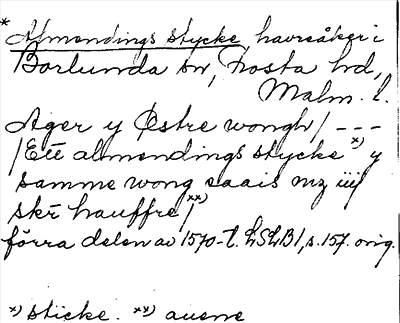 * Almendings stycke, havreåker i
Borlunda sn, Frosta hd,
Malm. l.
Ager y Østre wongh / - - -
/ Ett almendings stycke *) y
samme wong saais mz iiij
skr̄ hauffre / **)
förra delen av 1570-t. LSLB1, s. 157. orig.
*) sticke. **) auerne